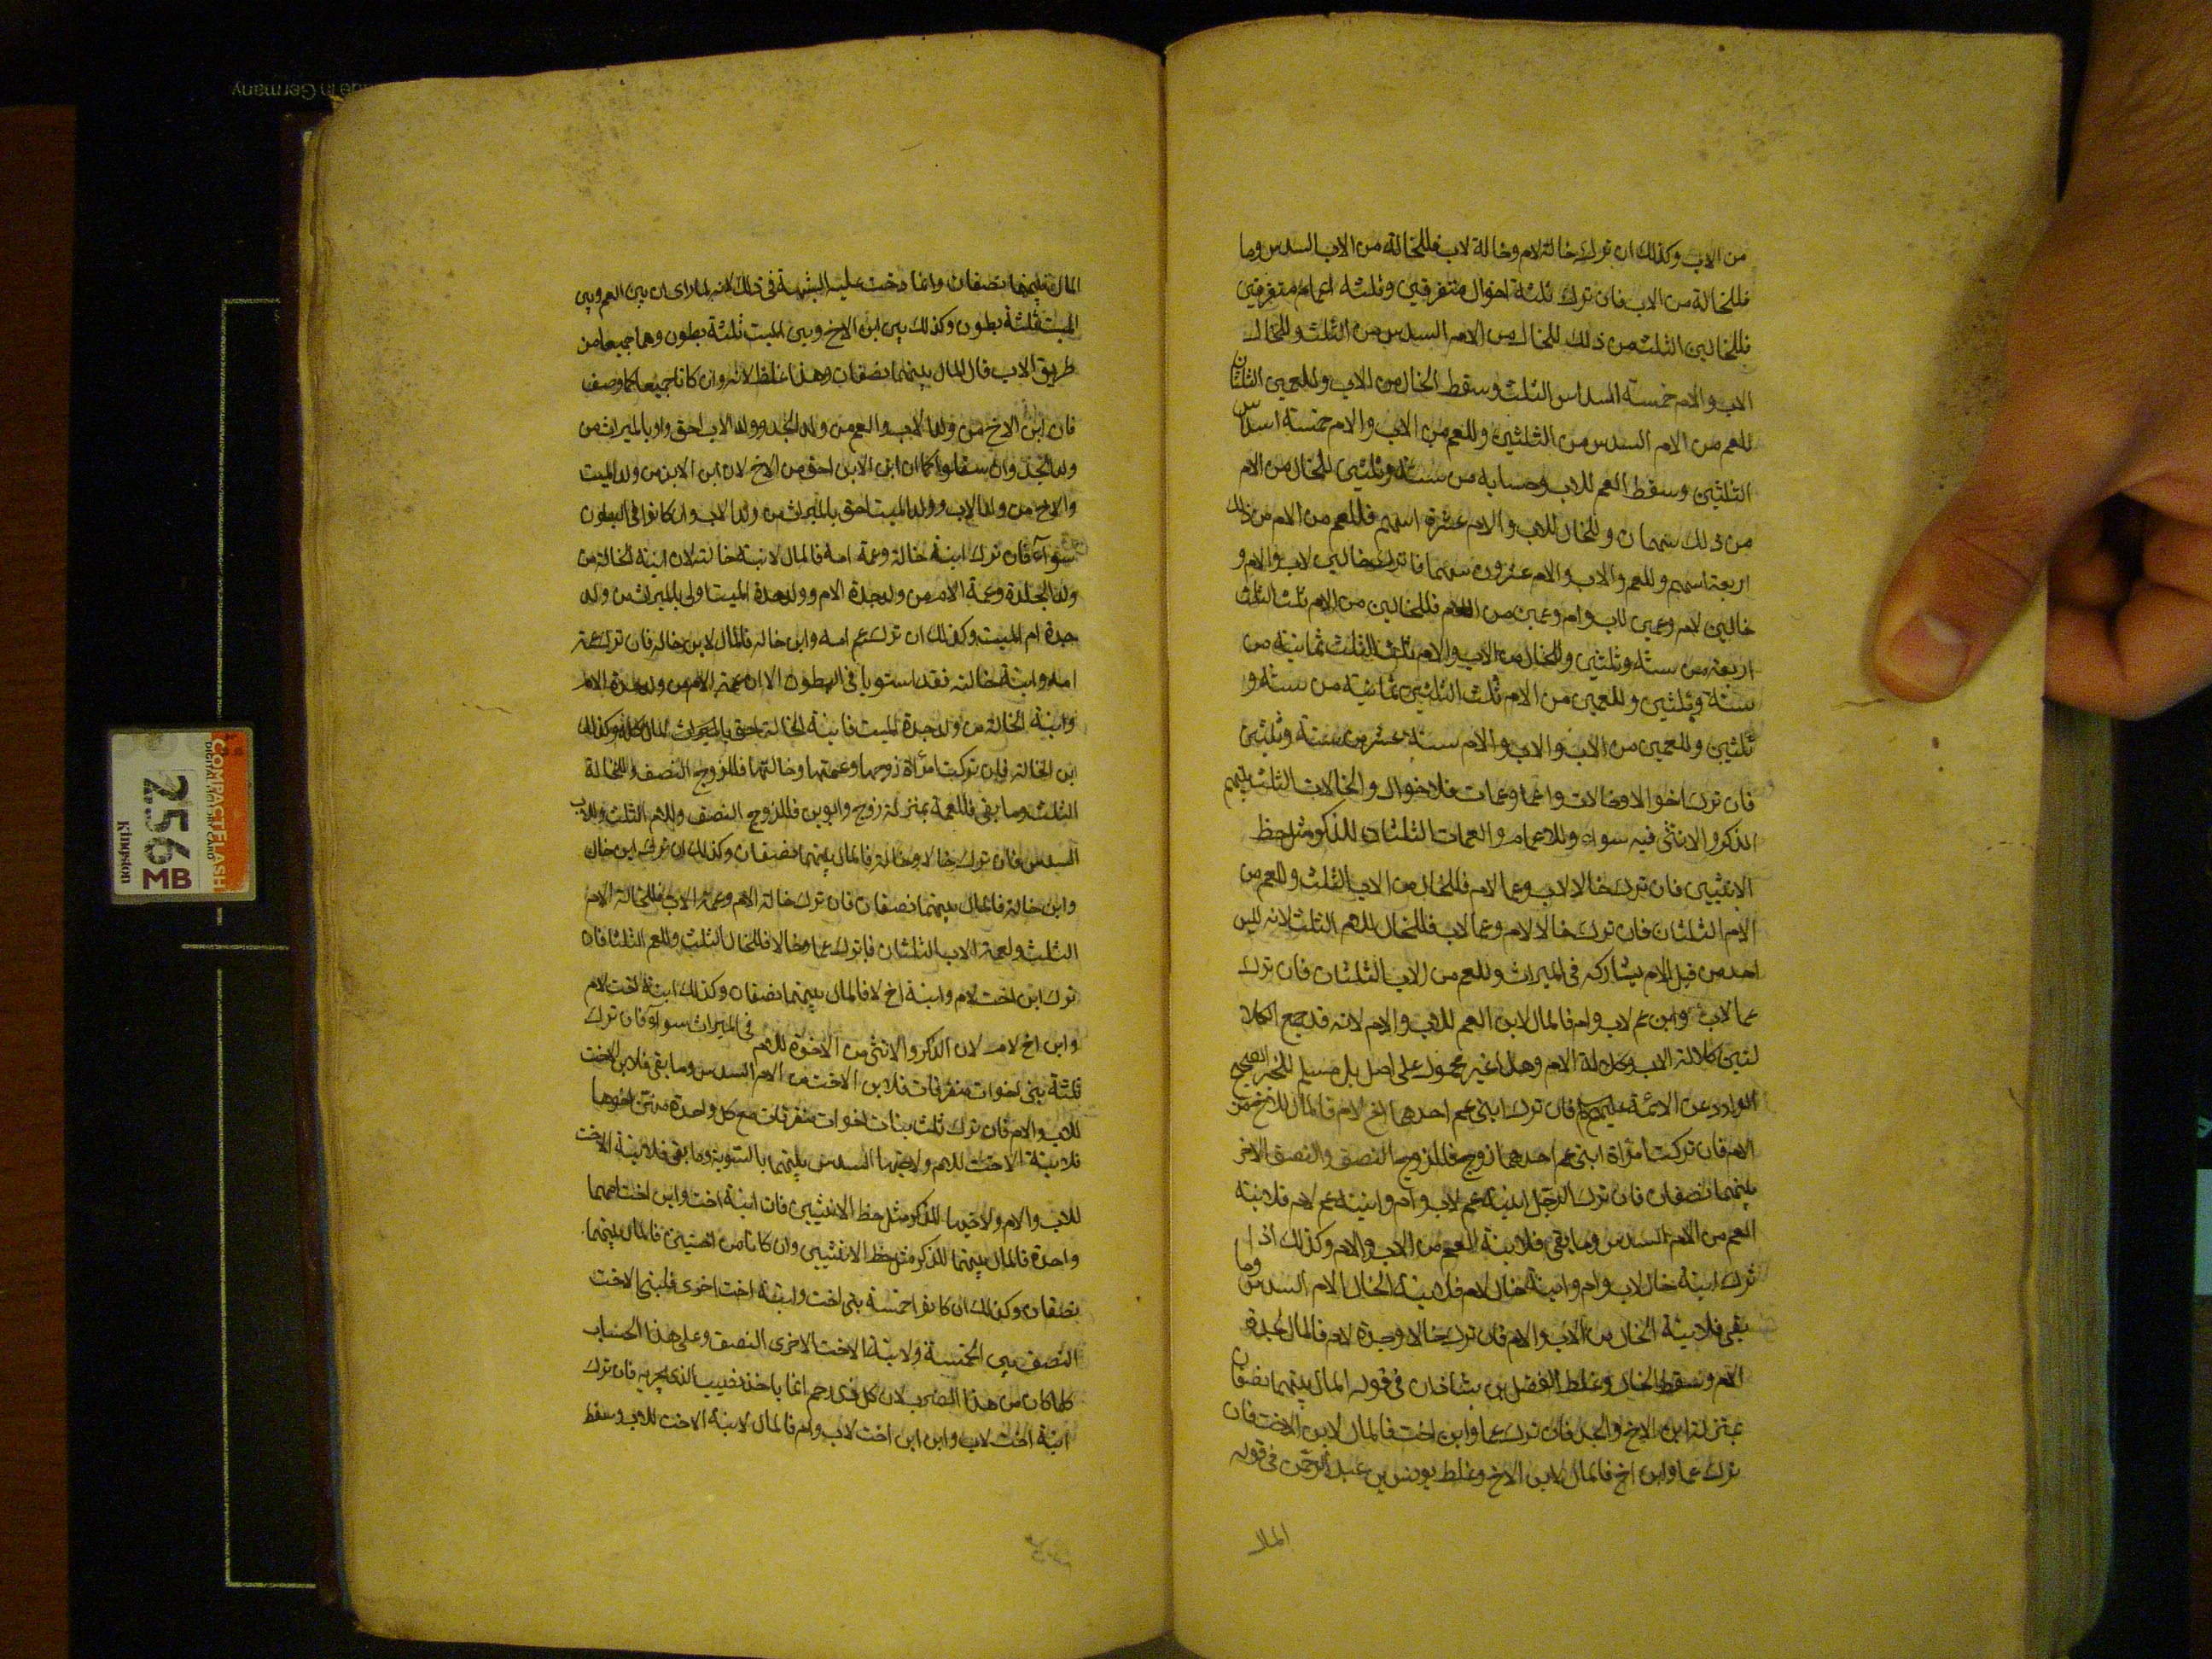 من الاب وكذلك ان ترك خالة لام وخالة لاب فللخالة من الاب السدس وما
فللخالة من الاب فان ترك ثلثة اخوال متفرقين وثلثة اعمام متفرقين
فللخالين الثلث من ذلك للخال من الام السدس من الثلث وللخال
الاب والام خمسة اسداس الثلث وسقط الخال من الاب وللعمين الثلثان
للعم من الام السدس من الثلثين وللعم من الاب والام خمسة اسداس
الثلثين وسقط العم للاب وحسابه من ستة وثلثين للخال من الام
من ذلك سهمان وللخال للاب والام عشرة اسهم فللعم من الام من ذلك
اربعة اسهم وللعم والاب والام عشرون سهما فان ترك خالين لاب والام و
خالين لام وعمين لاب وام وعمين من الام فللخالين من الام ثلث الثلث
اربعة من ستة وثلثين وللخال من الاب والام ثلثا الثلث ثمانية من
ستة وثلثين وللعمين من الام ثلث الثلثين ثمانية من ستة و
ثلثين وللعمين من الاب والاب والام ستة عشر من ستة وثلثين
فان ترك اخوالا وخالات واعماوعمات فلاخوال والخالات الثلث بينهم
الذكر والانثى فيه سواء وللاعمام والعمات الثلثان للذكر مثل حظ
الانثيين فان ترك خالا لاب وعما لام فللخال من الاب الثلث وللعم من
الام الثلثان فان ترك خالا لام وعما لاب فللخال للام الثلث لانه ليس
احد من قبل الام يشاركه في الميراث وللعم من الاب الثلثان فان ترك
عما لاب وابن عم لاب وام فالمال لابن العم للاب والام لانه قد جمع الكلا
لتين كلالة الاب وكلالة الام وهذا غير محمول على اصل بل مسلم للخبر الصحيح
الوارد عن الائمة عليهم فان ترك ابنى عم احدهما اخ لام فالمال للاخ من
الام فان تركت امراة ابنى عم احدهما زوج فللزوج النصف والنصف الاخر
بينهما نصفان فان ترك الرجل ابنة عم لاب وام وابنة عم لام فلابنة
العم من الام السدس وما بقي فلابنة العم من الاب والام وكذلك اذا
ترك ابنة خال لاب وام وابنة خال لام فلابنة الخال الام السدس وما
بقي فلابنة الخال من الاب والام فان ترك خالا وجدة لام فالمال لجدة
الام وسقط الخال وغلط الفضل بن شاذان في قوله المال بينهما نصفان
بمنزلة ابن الاخ والجد فان ترك عما وابن اخت فالمال لابن الاخت فان
ترك عما وابن اخ فالمال لابن الاخ وغلط يونس بن عبد الرحمن في قوله
المال
المال بينهما نصفان وانما دخلت عليه الشبهة في ذلك لانه لما راى ان بين العم وبين
الميت ثلثة بطون وكذلك بين ابن الاخ وبين الميت ثلثة بطون وهما جميعا من
طريق الاب قال المال بينهما نصفان وهذا غلط لانه وان كانا جميعا كما وصف
فان ابن الاخ من ولد الاب والعم من ولد الجد وولد الاب احق واولى بالميراث من
ولد الجد وان سفلوا كما ان ابن الابن احق من الاخ لان ابن الابن من ولد الميت
والاخ من ولد الاب وولد الميت احق بالميراث من ولد الاب وان كانوا في البطون
سواء فان ترك ابنة خالة وعمة امه فالمال لابنة خالته لان ابنة الخالة من
ولد الجدة وعمة الام من ولد جدة الام وولد جدة الميت اولى بالميراث من ولد
جدة ام الميت وكذلك ان ترك عم امه وابن خاله فالمال لابن خاله فان ترك عمة
امه وابنة خالته فقد استويا في البطون الا ان عمة الام من ولد جدة الام
وابنة الخالة من ولد جدة الميت فابنة الخالة احق بالميراث المال كله وكذلك
ابن الخالة فان تركت امرأة زوجها وعمتها وخالتها فللزوج النصف وللخالة
الثلث وما بقى فللعمة بمنزلة زوج وابوين فللزوج النصف وللام الثلث وللاب
السدس فان ترك خالا وخالة فالمال بينهما نصفان وكذلك ان ترك ابن خال
وابن خالة فالمال بينهما نصفان فان ترك خالة الام وعمة الاب فللخالة الام
الثلث ولعمة الاب الثلثان فان ترك عما وخالا فللخال الثلث وللعم الثلثا فان
ترك ابن اخت لام وابنة اخ لا فالمال بينهما نصفان وكذلك ابنة اخت لام
وابن اخ لام لان الذكر والانثى من الاخوة للام في الميراث سواء فان ترك
ثلثة بنى اخوات متفرقات فلابن الاخت من الام السدس وما بقي فلابن الاخت
للاب والام فان ترك ثلث بنات اخوات متفرقات مع كل واحدة منهن اخوها
فلابنة الاخت للام ولاخيها السدس بينهما بالسوية وما بقى فلابنة الاخت
للاب والام ولاخيها للذكر مثل حظ الانثيين فان ابنة اخت وابن اخت امهما
واحدة فالمال بينهما للذكر مثل حظ الانثيين وان كانا من اختين فالمال بينهما
نصفان وكذلك ان كانوا خمسة بنى اخت وابنة اخت اخرى فلبنى الاخت
النصف بين الخمسة ولابنة الاخت الاخرى النصف وعلى هذا الحساب
كلما كان من هذا الضرب لان كل ذى رحم انما ياخذ نصيب الذى يجر به فان ترك
ابنة اخت لاب وابن ابن اخت لاب وام فالمال لابنة الاخت للاب وسقط
COMPACTFLASH
DIGITAL MEDIA CARD
256
MB
Kingston
de in Germany